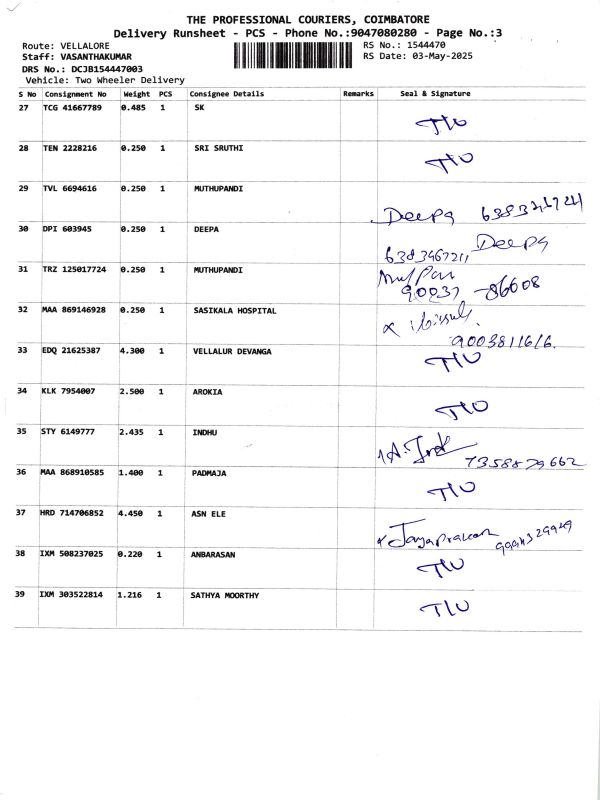 THE PROFESSIONAL COURIERS, COIMBATORE
Delivery Runsheet - PCS - Phone No.:9047080280 - Page No.:3
Route: VELLALORE RS No.: 1544470
Staff: VASANTHAKUMAR RS Date: 03-May-2025
DRS No.: DCJB154447003
Vehicle: Two Wheeler Delivery
S No Consignment No Weight PCS Consignee Details Remarks Seal & Signature
27 TCG 41667789 0.485 1 SK
T/U
28 TEN 2228216 0.250 1 SRI SRUTHI
T/U
29 TVL 6694616 0.250 1 MUTHUPANDI
Deepa
30 DPI 603945 0.250 1 DEEPA
Deepa
31 TRZ 125017724 0.250 1 MUTHUPANDI
90037 -86608
32 MAA 869146928 0.250 1 SASIKALA HOSPITAL
9003811616.
33 EDQ 21625387 4.300 1 VELLALUR DEVANGA
T/U
34 KLK 7954007 2.500 1 AROKIA
T/U
35 STY 6149777 2.435 1 INDHU
7358879662
36 MAA 868910585 1.400 1 PADMAJA
T/U
37 HRD 714706852 4.450 1 ASN ELE
38 IXM 508237025 0.220 1 ANBARASAN
T/U
39 IXM 303522814 1.216 1 SATHYA MOORTHY
T/U